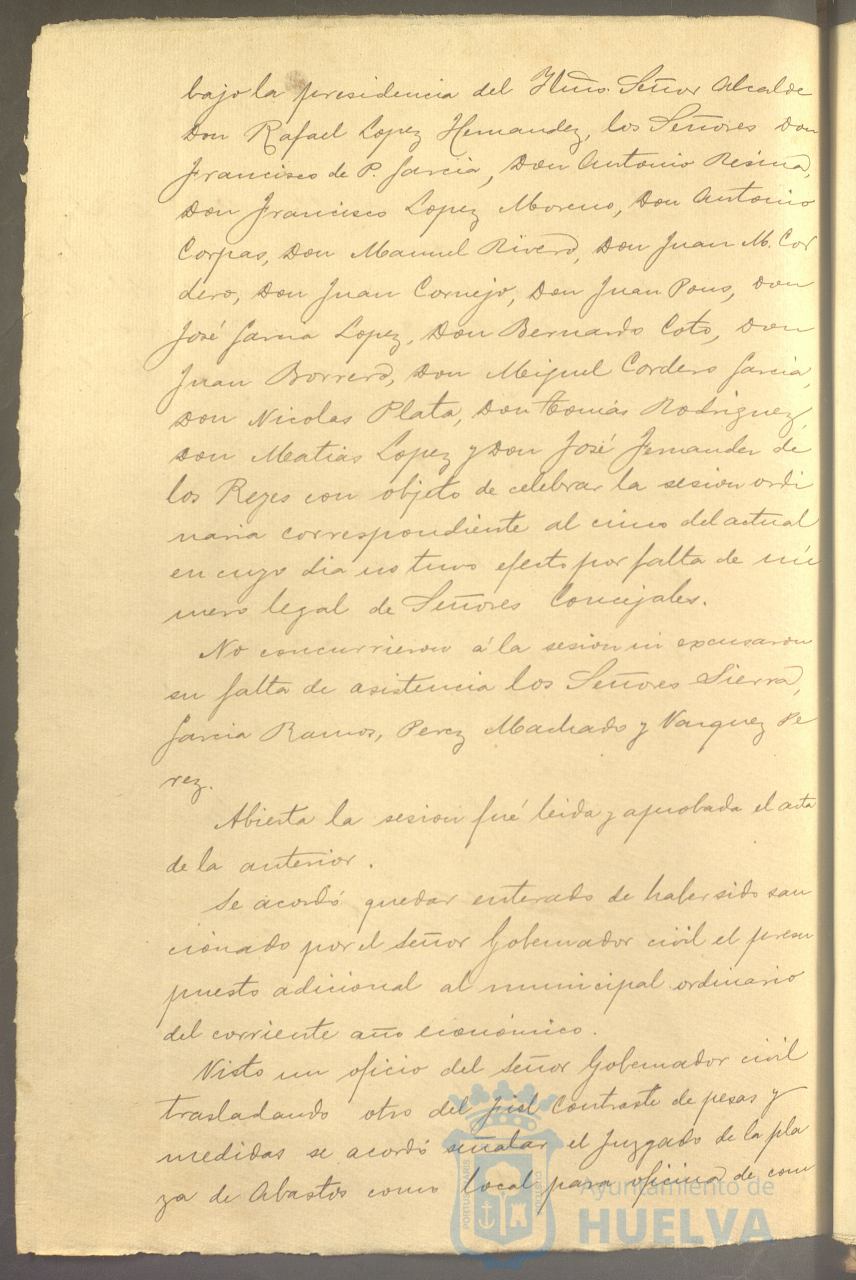 bajo la presidencia del Iltmo. Señor Alcalde
Don Rafael Lopez Hernandez, los Señores Don
Francisco de P. Garcia, Don Antonio Resina,
Don Francisco Lopez Moreno, Don Antonio
Corpas, Don Manuel Rivero, Don Juan M. Cor
dero, Don Juan Cornejo, Don Juan Pons, Don
José Garcia Lopez, Don Bernardo Coto, Don
Juan Borrero, Don Miguel Cordero Garcia,
Don Nicolas Plata, Don Tomás Rodriguez,
Don Matias Lopez y Don José Fernandez de
los Reyes con objeto de celebrar la sesion ordi
naria correspondiente al cinco del actual
en cuyo dia no tuvo efecto por falta de nú
mero legal de Señores Concejales.
No concurrieron á la sesion ni excusaron
su falta de asistencia los Señores Sierra,
Garcia Ramos, Perez Machado y Vazquez Pe
rez.
Abierta la sesion fué leida y aprobada el acta
de la anterior.
Se acordó quedar enterado de haber sido san
cionado por el Señor Gobernador civil el presu
puesto adicional al municipal ordinario
del corriente año económico.
Visto un oficio del Señor Gobernador civil
trasladando otro del fiel Contraste de pesas y
medidas se acordó señalar el Juzgado de la pla
za de Abastos como local para oficina de com
Ayuntamiento de
HUELVA